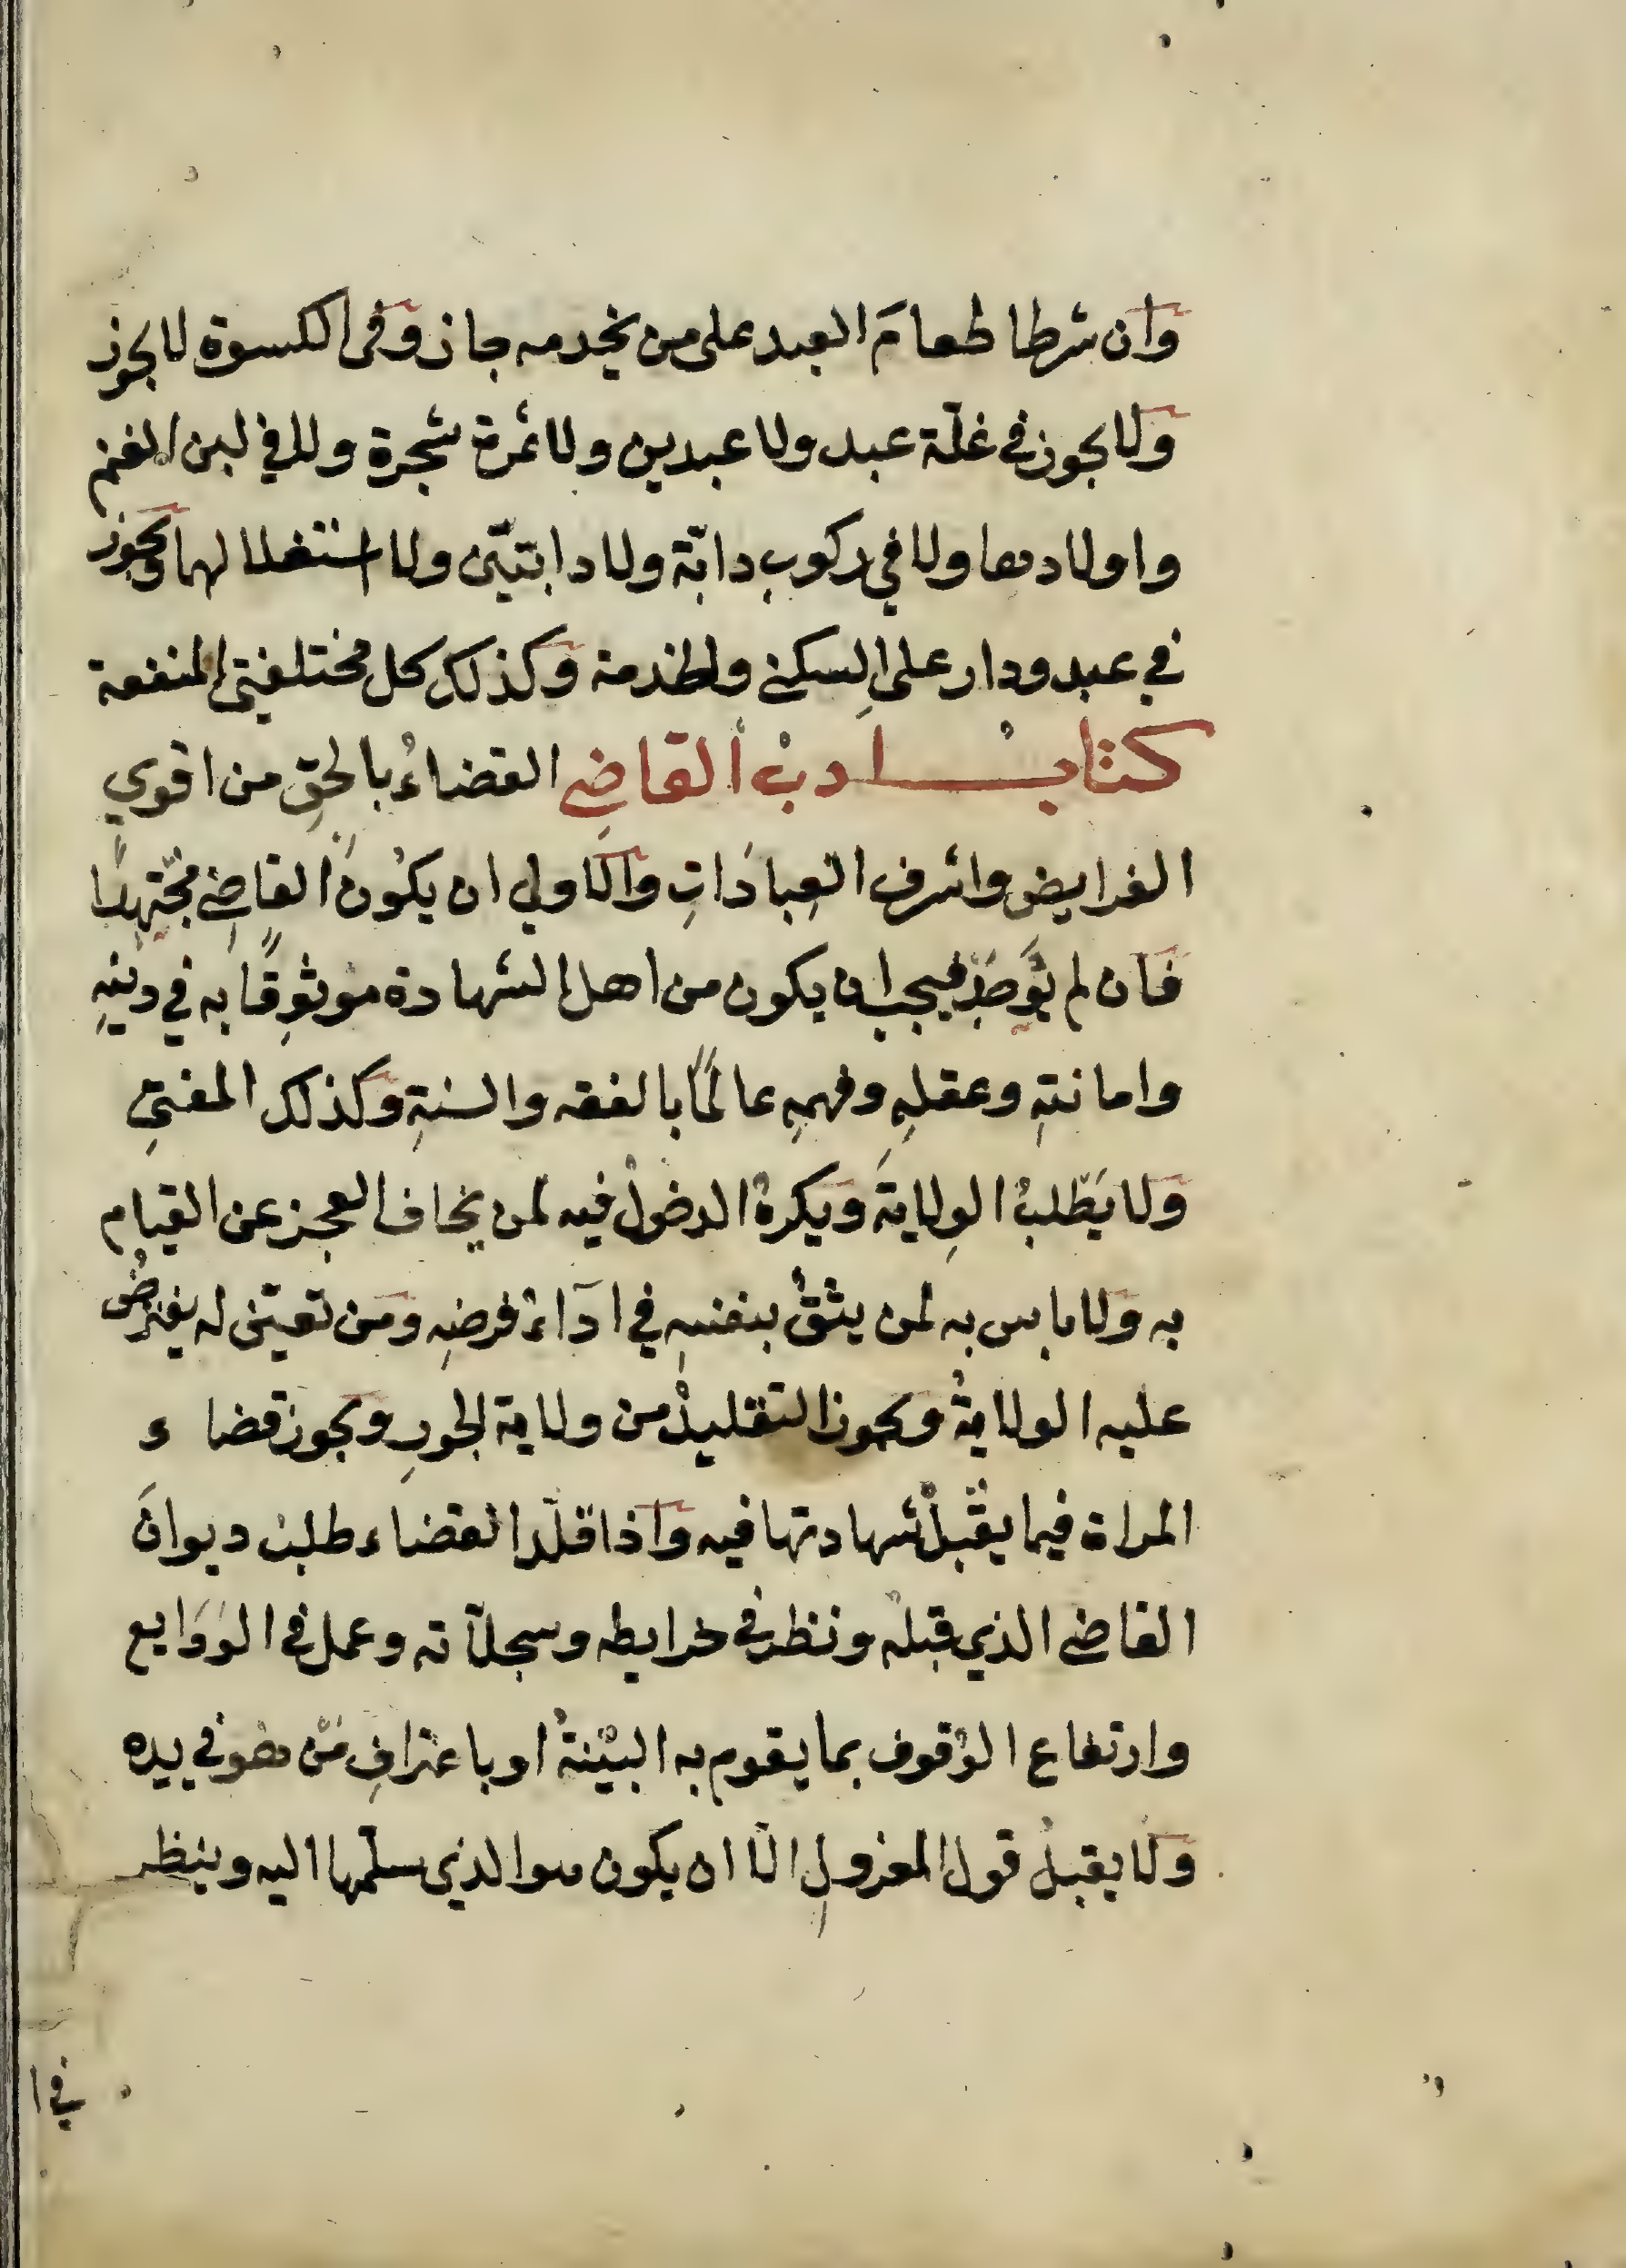 وان شرطا طعامَ العبد على من يخدمه جاز وفى الكسوة لا يجوز
ولا يجوز في غلّة عبد ولا عبدين ولا ثمرة شجرة ولا في لبن الغنم
واولادها ولا في ركوب دابّة ولا دابتيّن ولا استغلالهما ويجوز
في عبد ودار على السكنى والخدمة وكذلك كل مختلفتى المنفعة
كتاب ادب القاضي القضاءُ بالحقِ من اقوي
الفرايض واشرف العِبادَاتِ والاولي ان يكُونَ القاضِي مجتهِدًا
فان لم يُوجَدْ فيجب ان يكون من اهل الشهادة موثوقًا به في دينِهِ
وامانتهِ وعقلهِ وفهمِهِ عالمًا بالفقه والسنةِ وكذلك المفتي
ولا يَطّلبُ الوِلايةَ ويكرهُ الدخولُ فيه لمن يخاف العجز عن القيام
به ولا باس به لمن يثقُ بنفسِهِ في اَداءِ فرضِهِ ومَن تعيّن له يفترضُ
عليه الولايةُ ويجوز التقليدُ من ولاية الجورِ ويجوز قضاء
المراة فيما يقبلُ شهادتها فيه واذا قلّد القضاء طلب ديوانَ
القاضي الذي قبله ونظر في خرايطه وسجلّاته وعمل في الودَايع
وارتفاع الوُقوف بما يقوم به البيّنةُ او باعترافِ مَنْ هو في يده
ولا يقبلُ قول المعزولِ الّا ان يكون هو الذي سلّمها اليه وينظر
في ا